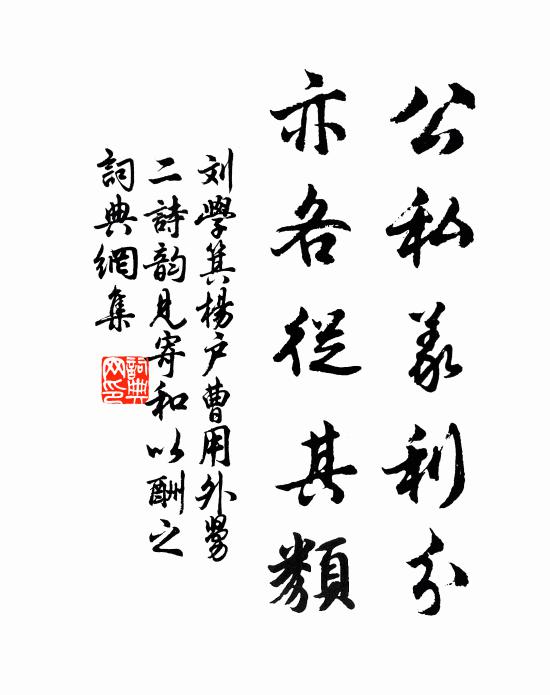 公私義利分
亦各從其類
刘學箕楊户曹用外舅
二詩韵見寄和以酬之
詞典網集
詞典网印